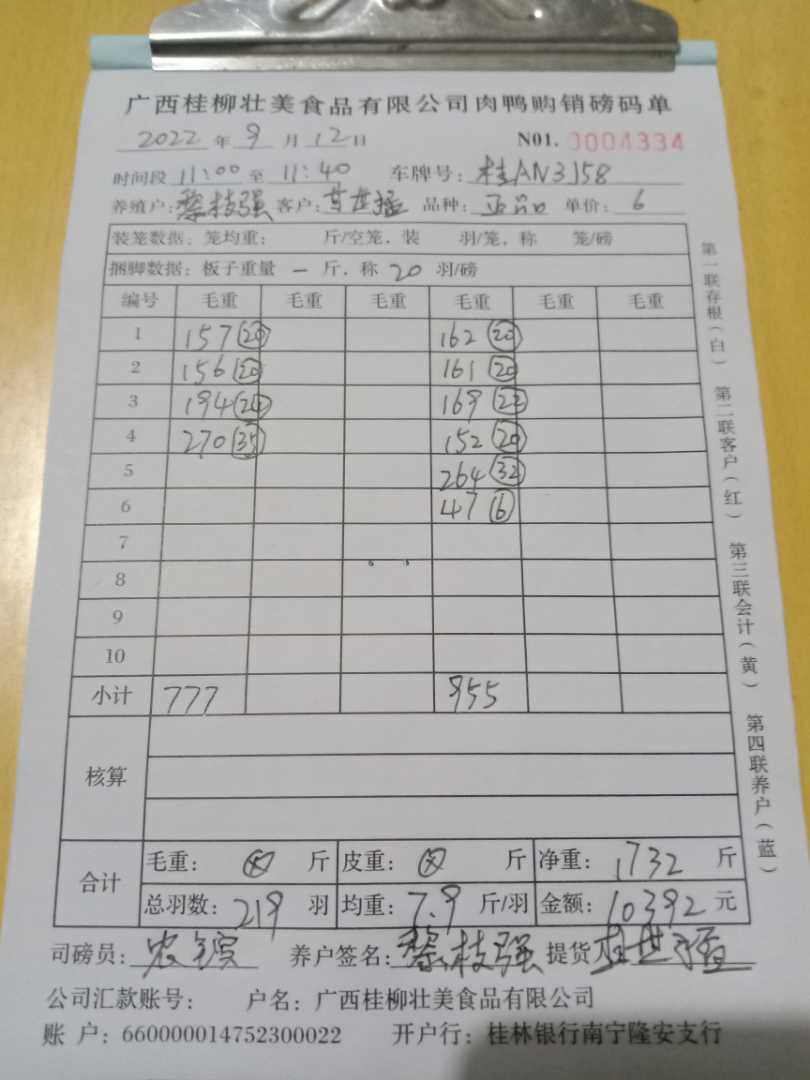 广西桂柳壮美食品有限公司肉鸭购销磅码单
2022 年 9 月 12 日 N01. 0004334
时间段 11:00 至 11:40 车牌号: 桂AN3J58
养殖户: 黎枝强 客户: 品种: 正品 单价: 6
装笼数据: 笼均重: 斤/空笼, 装 羽/笼, 称 笼/磅
捆脚数据: 板子重量 一 斤, 称 20 羽/磅
编号 毛重 毛重 毛重 毛重 毛重 毛重
1 157 20 162 20
2 156 20 161 20
3 194 24 169 22
4 270 35 152 20
5 264 32
6 47 6
7
8
9
10
小计 777 955
核算
合计 毛重: ⊗ 斤 皮重: ⊗ 斤 净重: 1732 斤
总羽数: 219 羽 均重: 7.9 斤/羽 金额: 10392 元
司磅员: 农 养户签名: 黎枝强 提货人
公司汇款账号: 户名: 广西桂柳壮美食品有限公司
账 户: 6600000014752300022 开户行: 桂林银行南宁隆安支行
第一联存根(白) 第二联客户(红) 第三联会计(黄) 第四联养户(蓝)